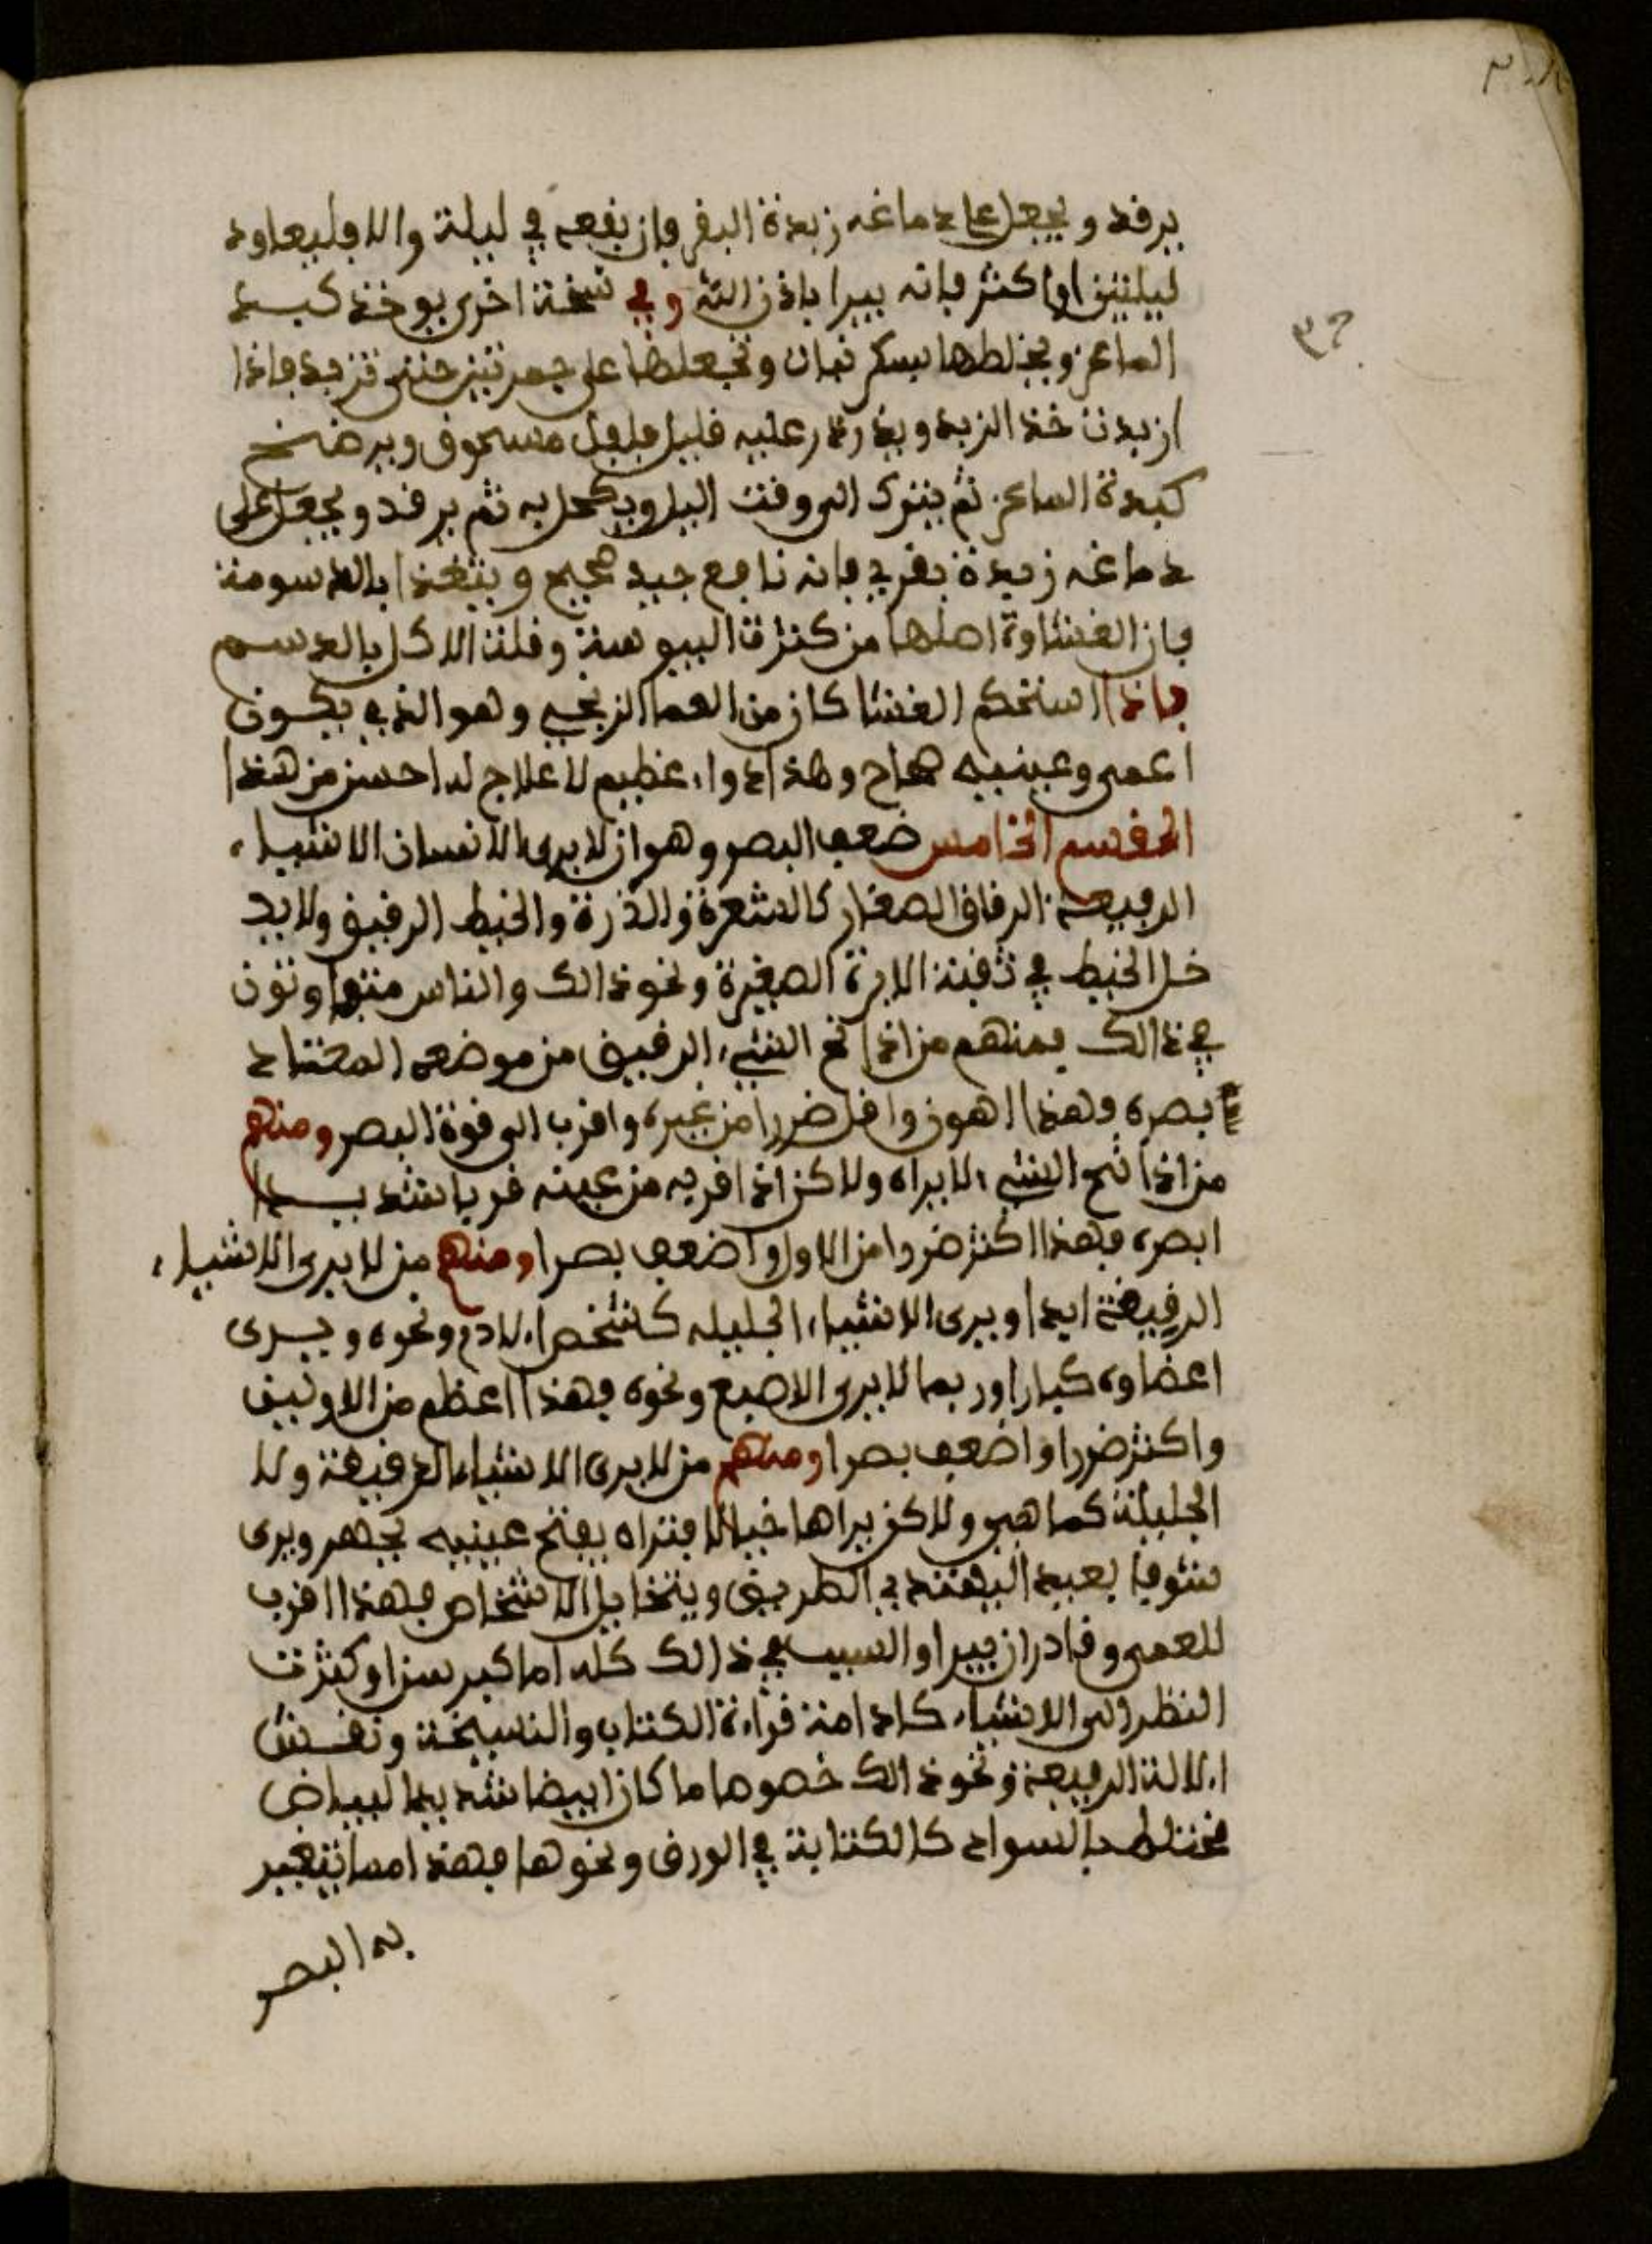 يرقد ويجعل على دماغه زبدة البقر فإن نفعه في ليلة والا فليعاود
ليلتين او اكثر فإنه يبرا باذن الله وفي نسخة اخرى يوخذ كبد
الماعز ويخلطها بسكر نبات وتجعلها على جمر تبن حتى تزبد فإذا
ازبدت خذ الزبد ويذرذر عليه قليل فلفل مسحوق ويرضخ
كبدة الماعز ثم يترك الى وقت اليل ويكحل به ثم يرقد ويجعل على
دماغه زبدة بقري فإنه نافع جيد صحيح ويتغذا بالدسومة
فإن الغشاوة اصلها من كثرت اليبوسة وقلت الاكل بالدسم
فإذا استحكم الغشا كان من العما الزنجي وهو الذي يكون
اعمى وعينيه صحاح وهذا دواء عظيم لا علاج له احسن من هذا
القسم الخامس ضعف البصر وهو ان لا يرى الانسان الاشياء
الرقيقة الرقاق الصغار كالشعرة والذرة والخيط الرقيق ولا يد
خل الخيط في ثقبة الابرة الصغيرة ونحو ذالك والناس متفاوتون
في ذالك فمنهم من اذا نح الشيء الرقيق من موضعه المعتاد
بصره وهذا اهون واقل ضررا من غيره واقرب الى قوة البصر ومنهم
من اذا نح الشيء لا يراه ولاكن اذا قربه من عينه قربا شديدا
ابصره فهذا اكثر ضررا من الاول واضعف بصرا ومنهم من لا يرى الاشياء
الرقيقة ابدا ويرى الاشياء الجليله كشخص ادم ونحوه ويرى
اعضاوه كبارا وربما لا يرى الاصبع ونحوه فهذا اعظم من الاوليين
واكثر ضررا واضعف بصرا ومنهم من لا يرى الاشياء الرقيقة ولا
الجليلة كما هي ولاكن يراها خيالا فتراه يفتح عينيه بجهر ويرى
شوفا بعيد اليهتد في الطريق ويتخايل الاشخاص فهذا اقرب
للعمى وقادر ان يبرا والسبب في ذالك كله اما كبر سن او كثرت
النظر الى الاشياء كادامة قراءة الكتاب والنسيخة ونقش
الالة الرقيقة ونحو ذالك خصوصا ما كان ابيضا شديد البياض
مختلط بالسواد كالكتابة في الورق ونحوها فهذا مما يتغير
به البصر